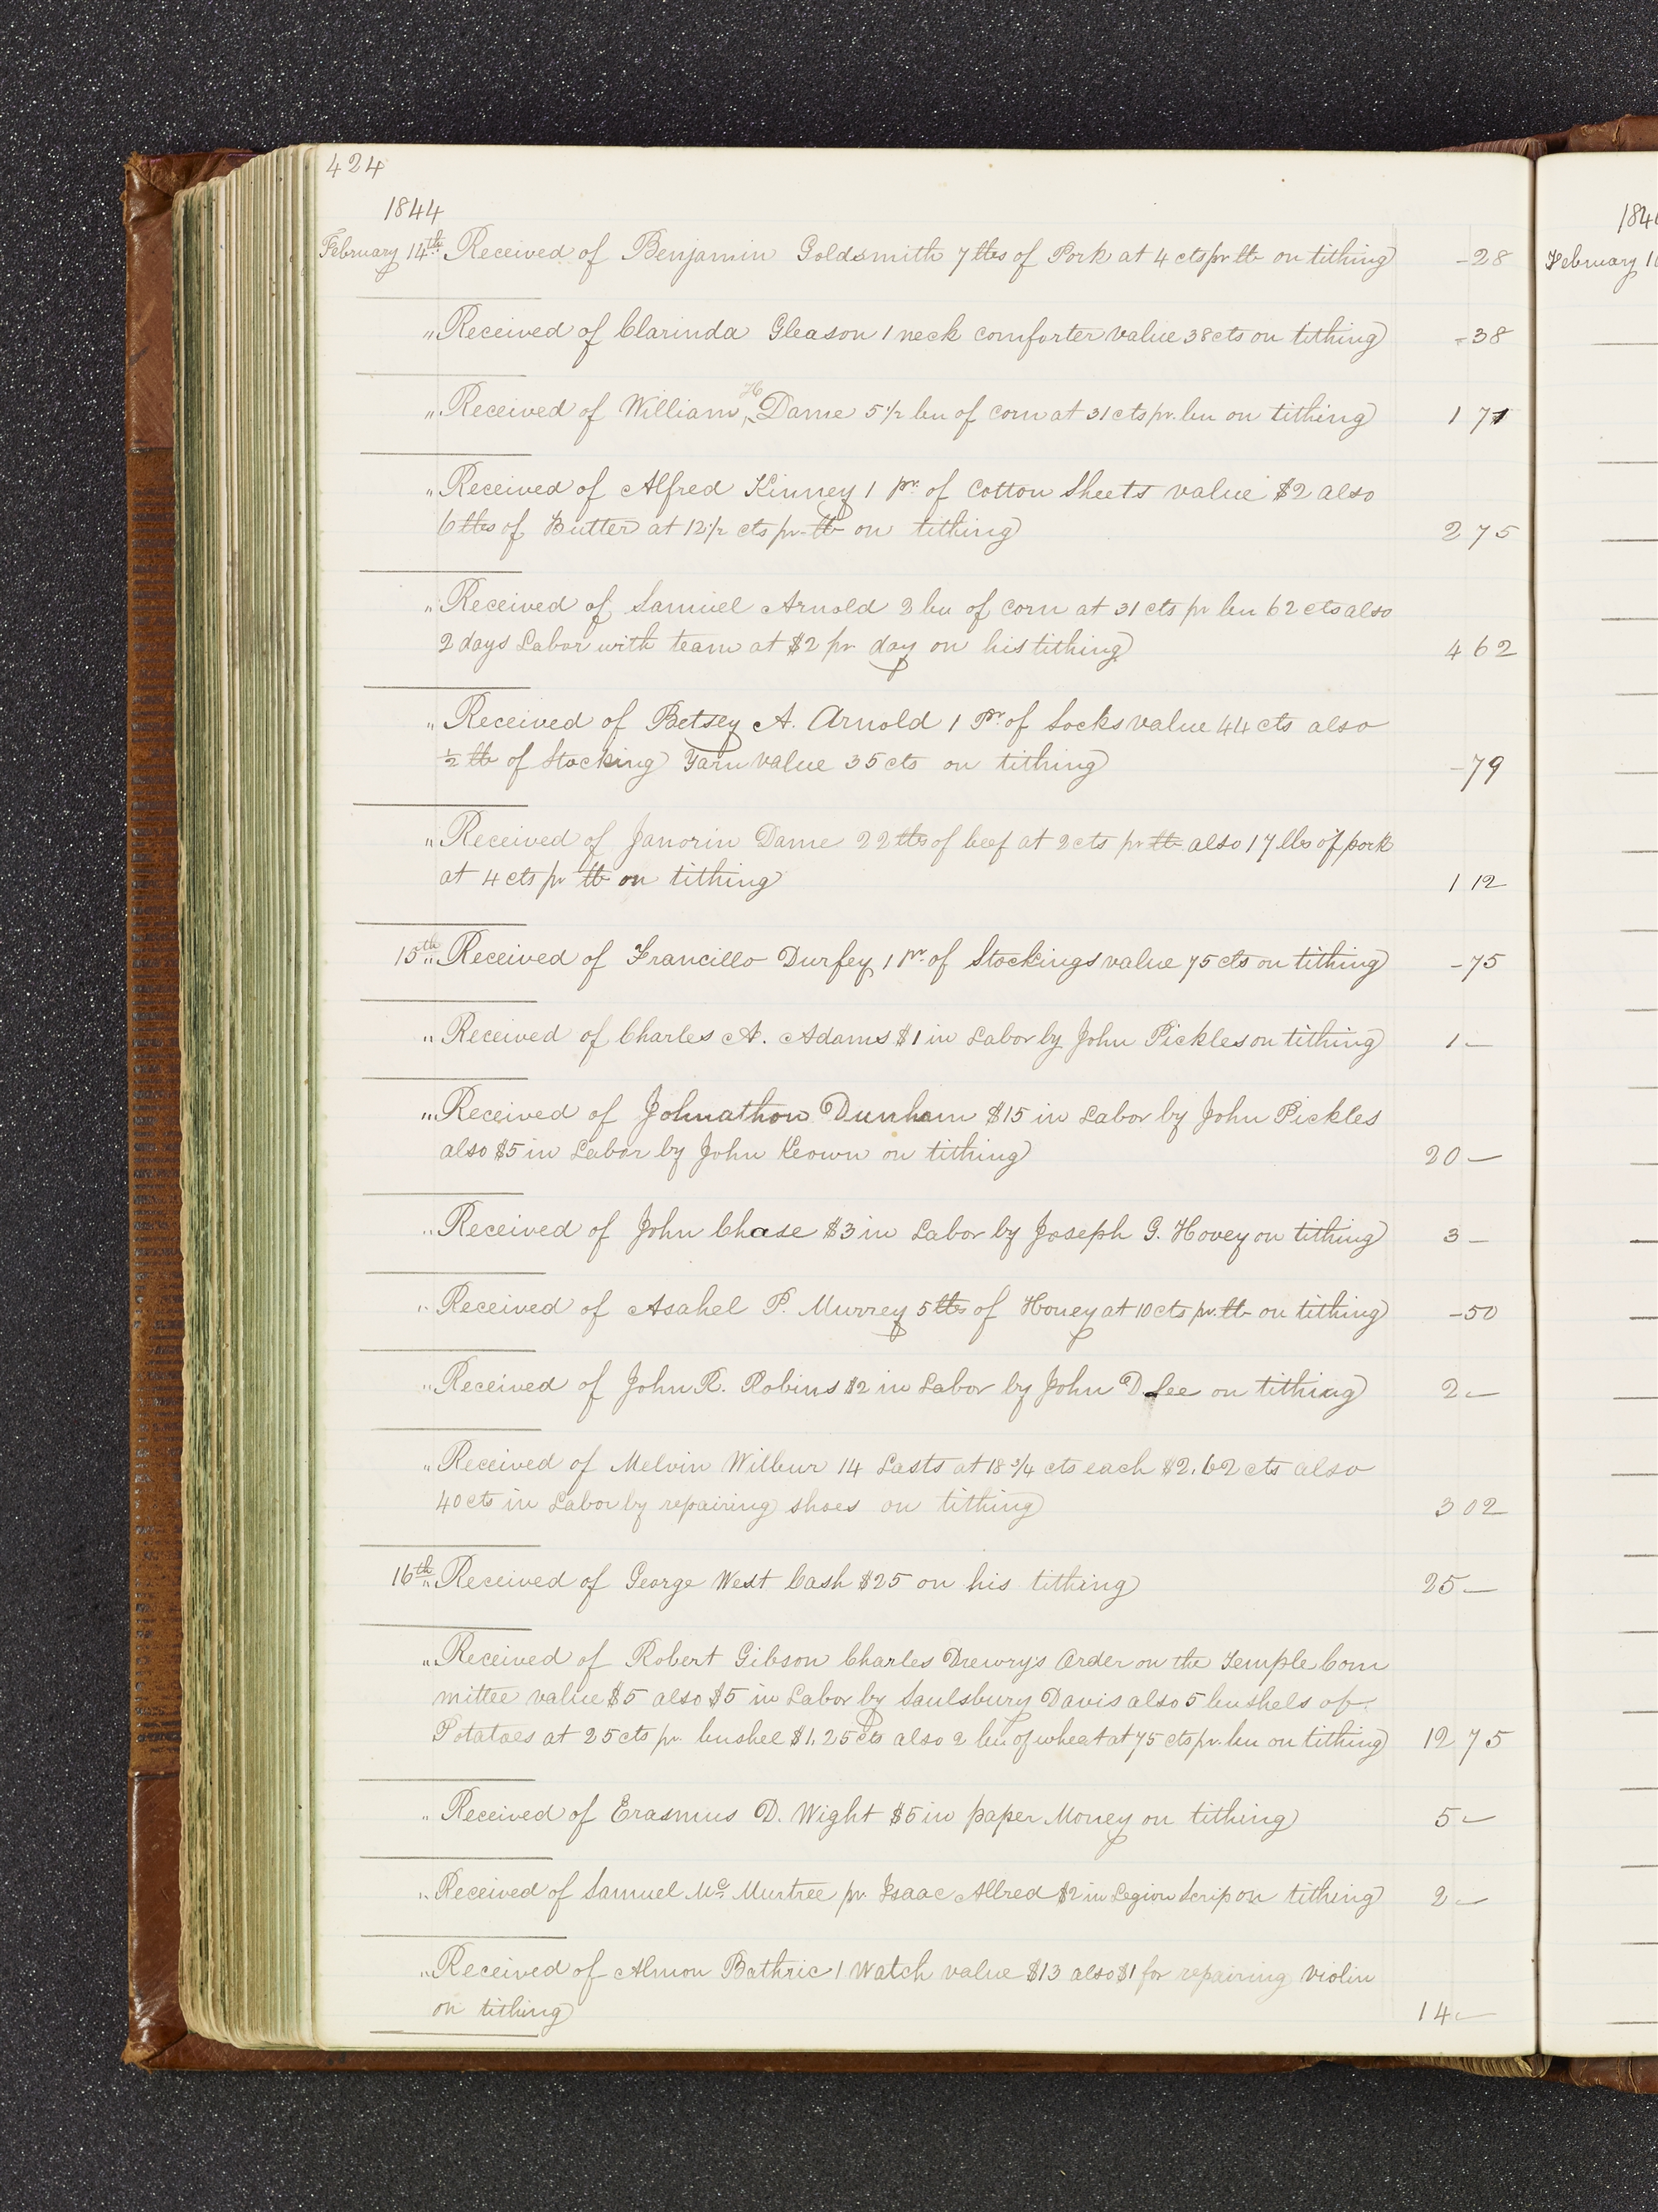 424
1844
February 14th Received of Benjamin Goldsmith 7 lbs of Pork at 4 cts pr lb on tithing -28
" Received of Clarinda Gleason 1 neck comforter value 38 cts on tithing -38
" Received of William H Dame 5 1/2 bu of corn at 31 cts pr. bu on tithing 1 71
" Received of Alfred Kinney 1 pr. of Cotton Sheets value $2 also
6 lbs of Butter at 12 1/2 cts pr lb on tithing 2 75
" Received of Samuel Arnold 2 bu of corn at 31 cts pr bu 62 cts also
2 days Labor with team at $2 pr day on his tithing 4 62
" Received of Betsey A. Arnold 1 Pr. of Socks value 44 cts also
1/2 lb of Stocking Yarn value 35 cts on tithing -79
" Received of Janorin Dame 22 lbs of beef at 2 cts pr lb also 17 lbs of pork
at 4 cts pr lb on tithing 1 12
15th " Received of Francillo Durfey 1 pr. of Stockings value 75 cts on tithing -75
" Received of Charles A. Adams $1 in Labor by John Pickles on tithing 1 —
" Received of Johnathon Dunham $15 in Labor by John Pickles
also $5 in Labor by John Keown on tithing 20 —
" Received of John Chase $3 in Labor by Joseph G. Hovey on tithing 3 —
" Received of Asahel P. Murrey 5 lbs of Honey at 10 cts pr. lb on tithing -50
" Received of John R. Robins $2 in Labor by John D Lee on tithing 2 —
" Received of Melvin Wilbur 14 Lasts at 18 3/4 cts each $2.62 cts also
40 cts in Labor by repairing shoes on tithing 3 02
16th " Received of George West Cash $25 on his tithing 25 —
" Received of Robert Gibson Charles Drewrys Order on the Temple Com
mittee value $5 also $5 in Labor by Saulsbury Davis also 5 bushels of
Potatoes at 25 cts pr. bushel $1.25 cts also 2 bu of wheat at 75 cts pr. bu on tithing 12 75
" Received of Erasmus D. Wight $5 in paper Money on tithing 5 —
" Received of Samuel Mc. Murtree pr. Isaac Allred $2 in Legion Scrip on tithing 2 —
" Received of Almon Bathric 1 Watch value $13 also $1 for repairing violin
on tithing 14 —
184
February 1